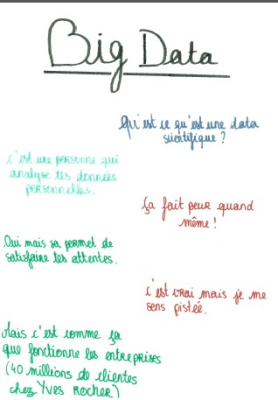 Big Data
Qu'est ce qu'est une data
scientifique ?
c'est une personne qui
analyse tes données
personnelles.
ça fait peur quand
même !
Oui mais sa permet de
satisfaire les attentes.
c'est vrai mais je me
sens pistée.
Mais c'est comme ça
que fonctionne les entreprises
(40 millions de clientes
chez Yves Rocher)